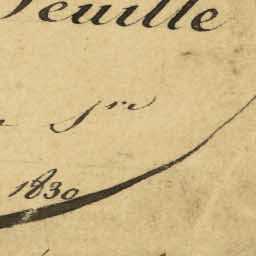 Feuille
Sre
1830